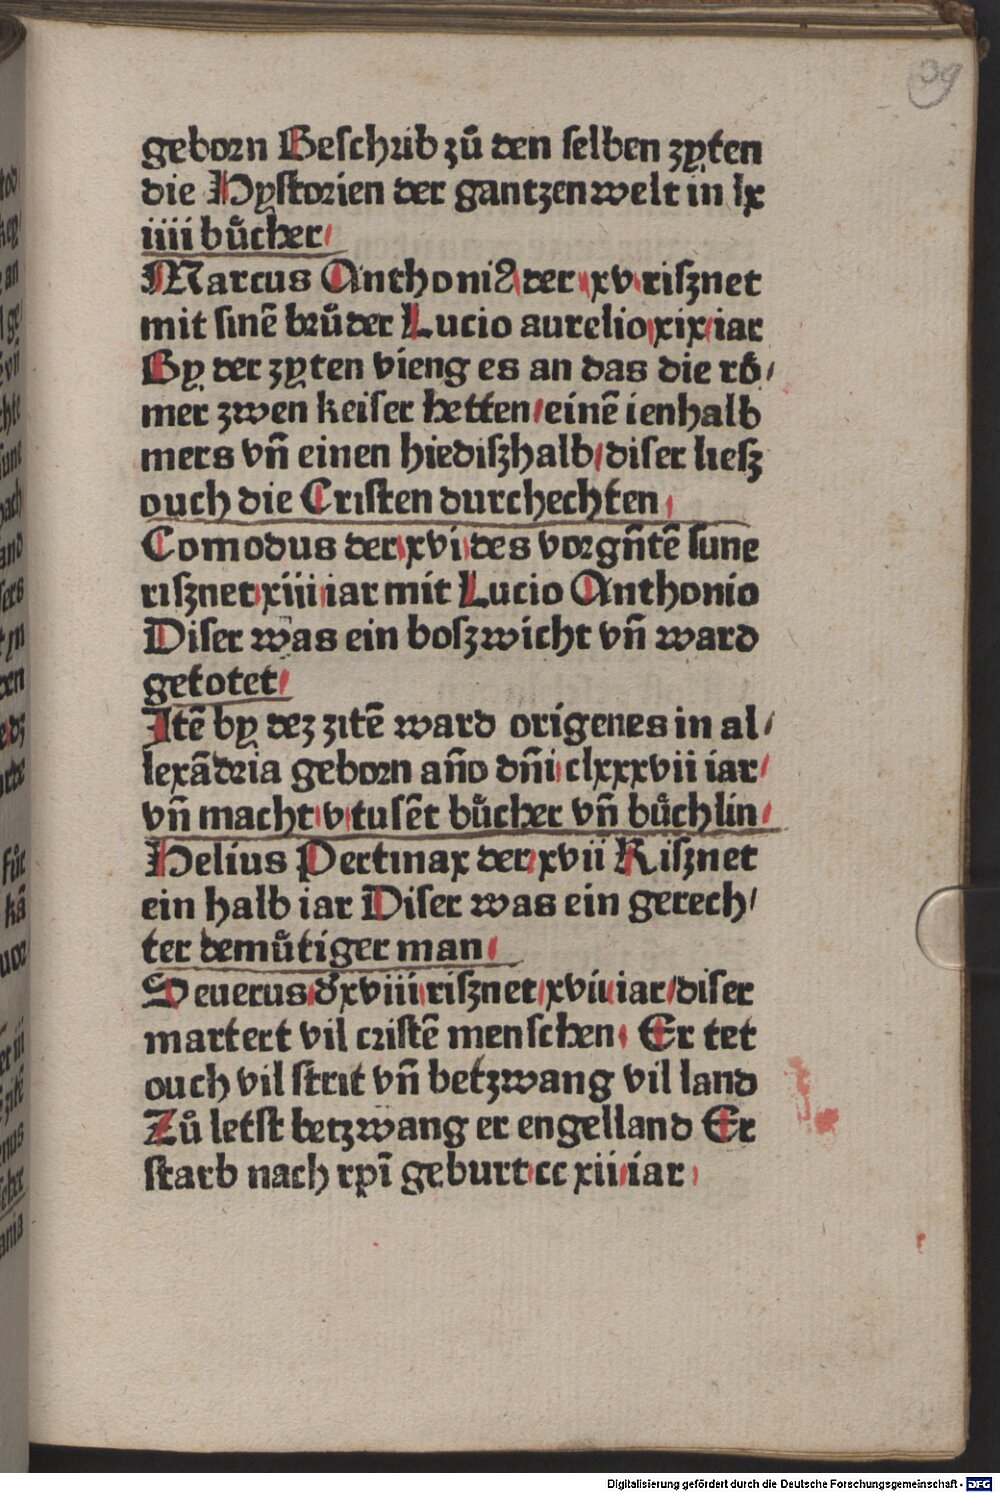 39
geborn Beschrib zů den selben zyten
die Hystorien der gantzen welt in lx
iiii bůcher/
Marcus Anthoniꝰ der xv riſznet
mit ſinē brůder Lucio aurelio xix iar
By der zyten vieng es an das die rö/
mer zwen keiſer hetten/ einē ienhalb
mers vn̄ einen hiediſzhalb/ diſer lieſz
ouch die Criſten durchechten
Comodus der xvi des vorgn̄tē ſune
riſznet xiii iar mit Lucio Anthonio
Diſer was ein boſzwicht vn̄ ward
getotet/
Itē by dez zitē ward origenes in al/
lexādria geborn an̄o dn̄i clxxxvii iar/
vn̄ macht v tuſēt bůcher vn̄ bůchlin/
Helius Pertinax der xvii Riſznet
ein halb iar Diſer was ein gerech/
ter demůtiger man/
Seuerus d' xviii riſznet xvii iar/ diſer
martert vil criſtē menſchen Er tet
ouch vil ſtrit vn̄ betzwang vil land
Zů letſt betzwang er engelland Er
ſtarb nach xpī geburt cc xii iar
Digitalisierung gefördert durch die Deutsche Forschungsgemeinschaft - DFG